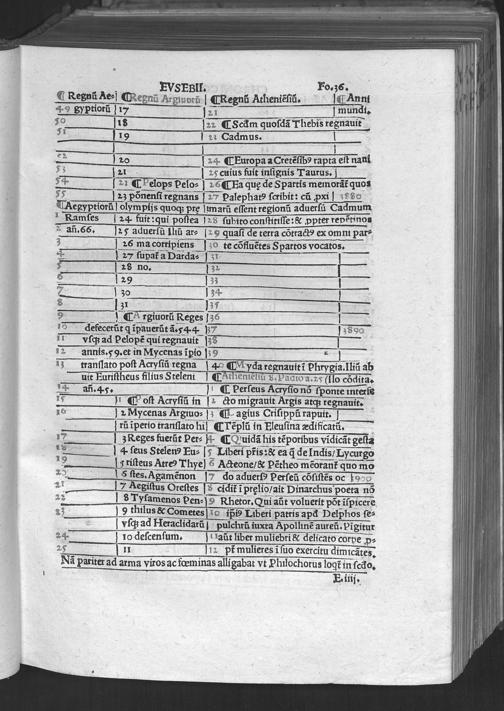 EVSEBII. Fo.36.
¶ Regnū Ae= ¶Regnū Argiuorū ¶Regnū Atheniēsiū. ¶Anni
49 gyptiorū 17 21 mundi.
50 18 22 ¶Scdm quosdā Thebis regnauit
51 19 23 Cadmus.
52 20 24 ¶Europa a Cretēsibꝰ rapta est nani
53 21 25 cuius fuit insignis Taurus.
54 22 ¶Pelops Pelos= 26 ¶Ea quę de Spartis memorāt quos
55 23 pōnensi regnans 27 Palephatꝰ scribit: cū ,pxi 1880
¶Aegyptiorū olympijs quoqꝫ prę umarū essent regionū aduersū Cadmum
1 Ramses 24 fuit: qui postea 28 subito constitisse: & ,ppter repētinos
2 añ.66. 25 aduersū Iliū ar= 29 quasi de terra cōtractꝰ ex omni par=
3 26 ma corripiens 30 te cōfluētes Spartos vocatos.
4 27 supať a Darda= 31
5 28 no. 32
6 29 33
7 30 34
8 31 35
9 ¶Argiuorū Reges 36
10 defecerūt q īpauerūt ā.544 37 1890
11 vsqꝫ ad Pelopē qui regnauit 38
12 annis.59.et in Mycenas īpio 39
13 translato post Acrysiū regna 40 ¶Myda regnauit ī Phrygia.Iliū ab
uit Euristheus filius Steleni ¶Atheniēsiū 8. Pādio a.25 Ilo cōdita.
14 añ.45. 1 ¶ Perseus Acrysio nō sponte interse
15 1 ¶Post Acrysiū in 2 cto migrauit Argis atqꝫ regnauit.
16 2 Mycenas Argiuo= 3 ¶Pelagius Crisippū rapuit.
rū īperio translato hi ¶Tēplū in Eleusina ædificatū.
17 3 Reges fuerūt Per= 4 ¶Quidā his tēporibus vidicāt gesta
18 4 seus Stelenꝰ Eu= 5 Liberi pris: & ea q̄ de Indis/Lycurgo
19 5 risteus Atreꝰ Thye 6 Acteone/& Pētheo meōranť quo mo
20 6 stes. Agamēnon 7 do aduersꝰ Perseū cōsistēs oc 1900
21 7 Aegistus Orestes 8 cidiť ī prelio/ait Dinarchus poeta nō
22 8 Tysamenus Pen= 9 Rhetor. Qui aūt voluerit pōt īspicere
23 9 thilus & Cometes 10 ip̄iꝰ Liberi patris apd Delphos se=
vsqꝫ ad Heraclidarū pulchrū iuxta Apollinē aureū. Pīgitur
24 10 descensum. 11 aūt liber muliebri & delicato corpe ,p=
25 11 12 pť mulieres ī suo exercitu dimicātes.
Nā pariter ad arma viros ac fœminas alligabat vt Philochorus loqť in scdo.
E.iiij.